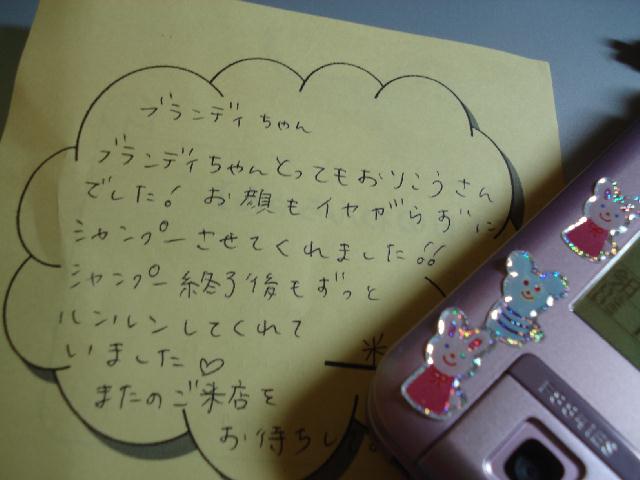 ブランディちゃん
ブランディちゃんとってもおりこうさん
でした! お顔もイヤがらずに
シャンプーさせてくれました!!
シャンプー終了後もずっと
ルンルンしてくれて
いました♡
またのご来店を
お待ちし
米